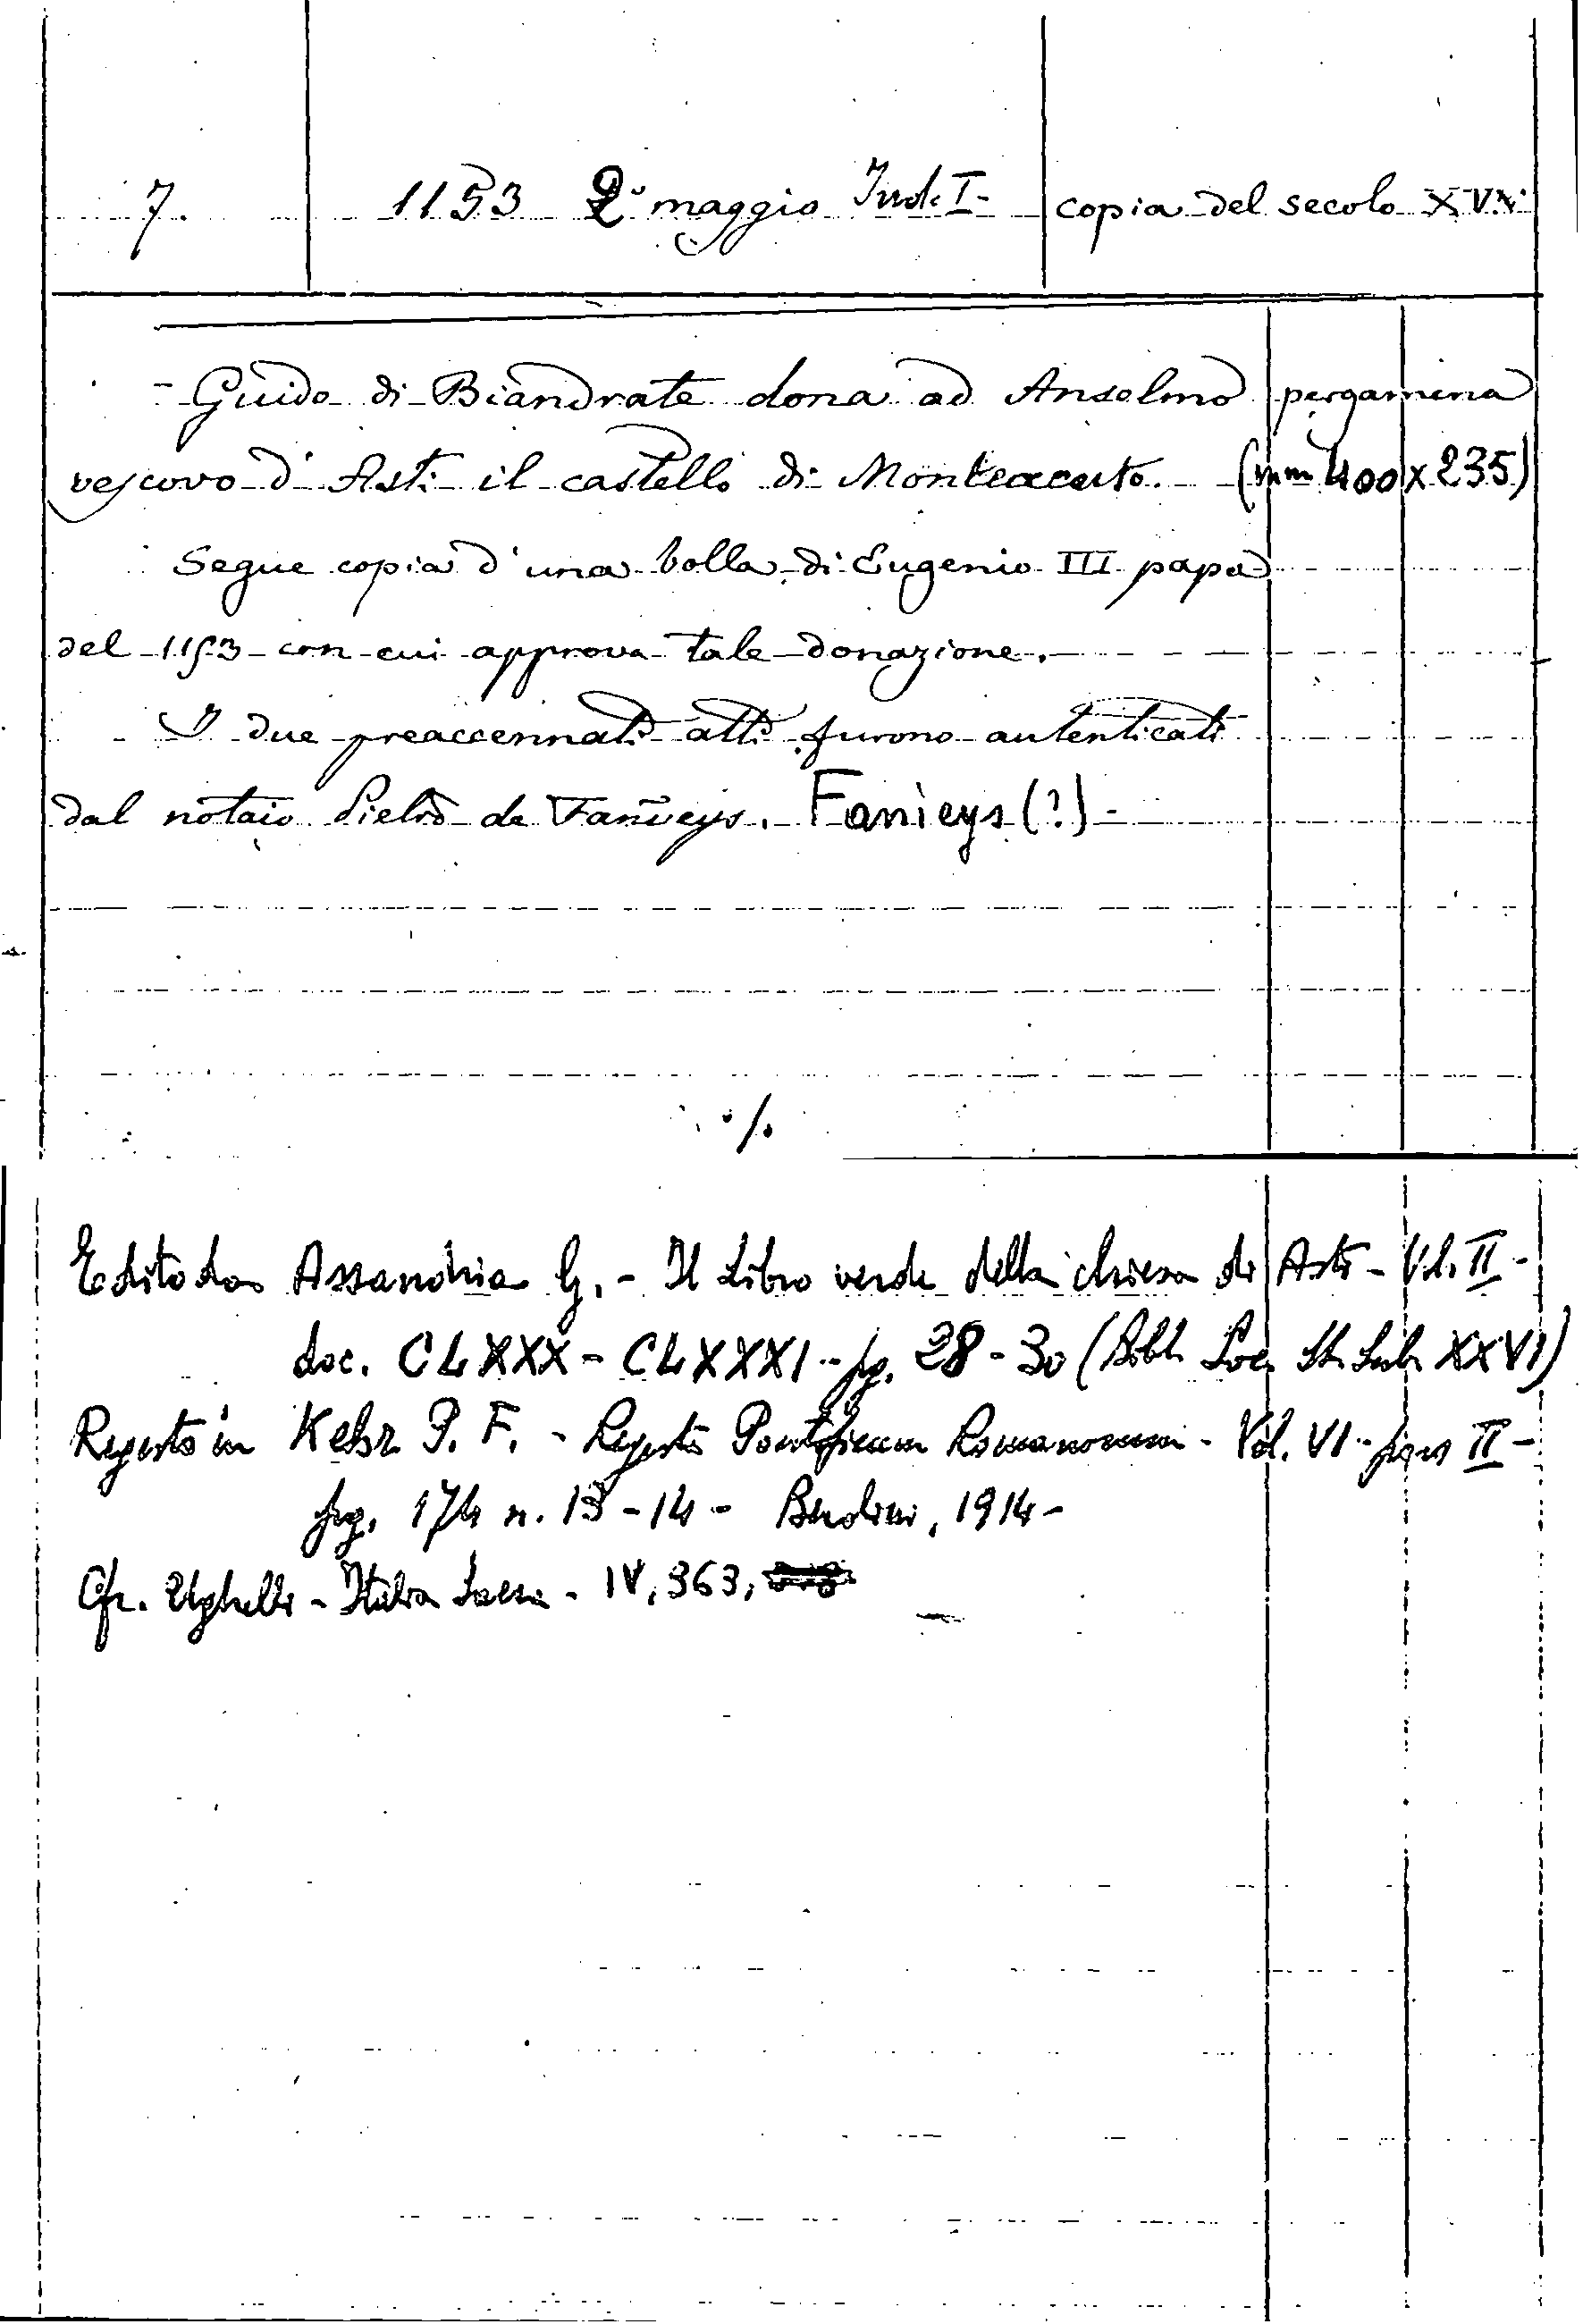 7. 1153 2 maggio Ind. I - copia del secolo XV
- Guido di Biandrate dona ad Anselmo pergamena
vescovo d'Asti il castello di Monteacuto. (mm 400 x 235)
Segue copia d'una bolla di Eugenio III papa
del 1153 con cui approva tale donazione.
I due preaccennati atti furono autenticati
dal notaio Pietro de Fanieys. Fanieys (?) -
./.
Edito da Assandria G. - Il Libro verde della chiesa di Asti - Vol. II -
doc. CLXXX - CLXXXI - pg. 28 - 30 (Bibl. Soc. St. Sub. XXVI)
Regesto in Kehr P. F. - Regesta Pontificum Romanorum - Vol. VI - pars II -
pg. 174 n. 13 - 14 - Berolini, 1914 -
Cfr. Ughelli - Italia Sacra - IV, 363,